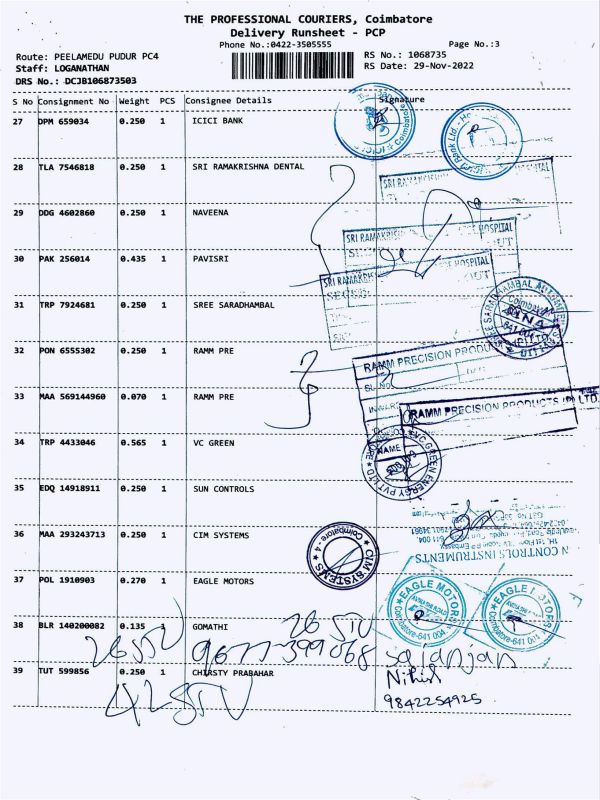 THE PROFESSIONAL COURIERS, Coimbatore
Delivery Runsheet - PCP
Phone No.:0422-3505555
Page No.:3
Route: PEELAMEDU PUDUR PC4
RS No.: 1068735
Staff: LOGANATHAN
RS Date: 29-Nov-2022
DRS No.: DCJB106873503
S No Consignment No Weight PCS Consignee Details Signature
27 DPM 659034 0.250 1 ICICI BANK
28 TLA 7546818 0.250 1 SRI RAMAKRISHNA DENTAL
29 DDG 4602860 0.250 1 NAVEENA
SRI RAMAKRIS HOSPITAL
30 PAK 256014 0.435 1 PAVISRI
SRI RAMAKRISH
31 TRP 7924681 0.250 1 SREE SARADHAMBAL
32 PON 6555302 0.250 1 RAMM PRE
RAMM PRECISION PRODU
33 MAA 569144960 0.070 1 RAMM PRE
RAMM PRECISION PRODUCTS (P) LTD.
34 TRP 4433046 0.565 1 VC GREEN
VC GREEN ENERGY PVT LTD
NAME
35 EDQ 14918911 0.250 1 SUN CONTROLS
36 MAA 293243713 0.250 1 CIM SYSTEMS
CIM SYSTEMS
Coimbatore - 4
N CONTROLS INSTRUMENTS
37 POL 1910903 0.270 1 EAGLE MOTORS
EAGLE MOTORS
Coimbatore-641 004
EAGLE MOTORS
Coimbatore-641 004
38 BLR 140200082 0.135 1 GOMATHI
9677-399068
39 TUT 599856 0.250 1 CHIRSTY PRABAHAR
9842254925